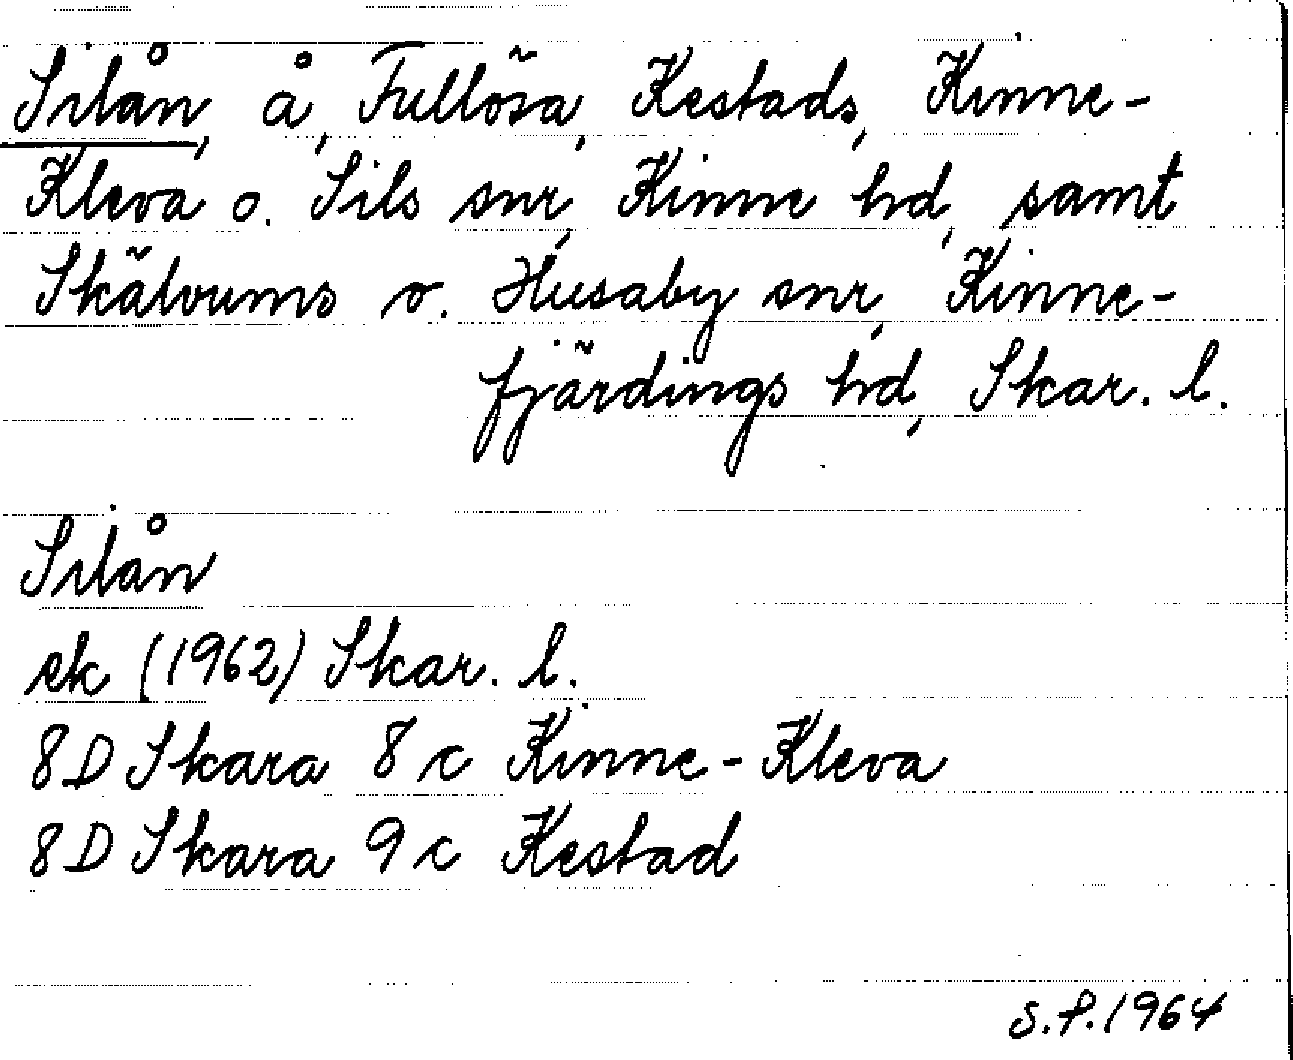 Silån, å, Fullösa, Kestads, Kinne-
Kleva o. Sils snr, Kinne hd, samt
Skälvums o. Husaby snr, Kinne-
fjärdings hd, Skar. l.
Silån
ek (1962) Skar. l.
8D Skara 8 c Kinne-Kleva
8D Skara 9 c Kestad
S.P. 1964